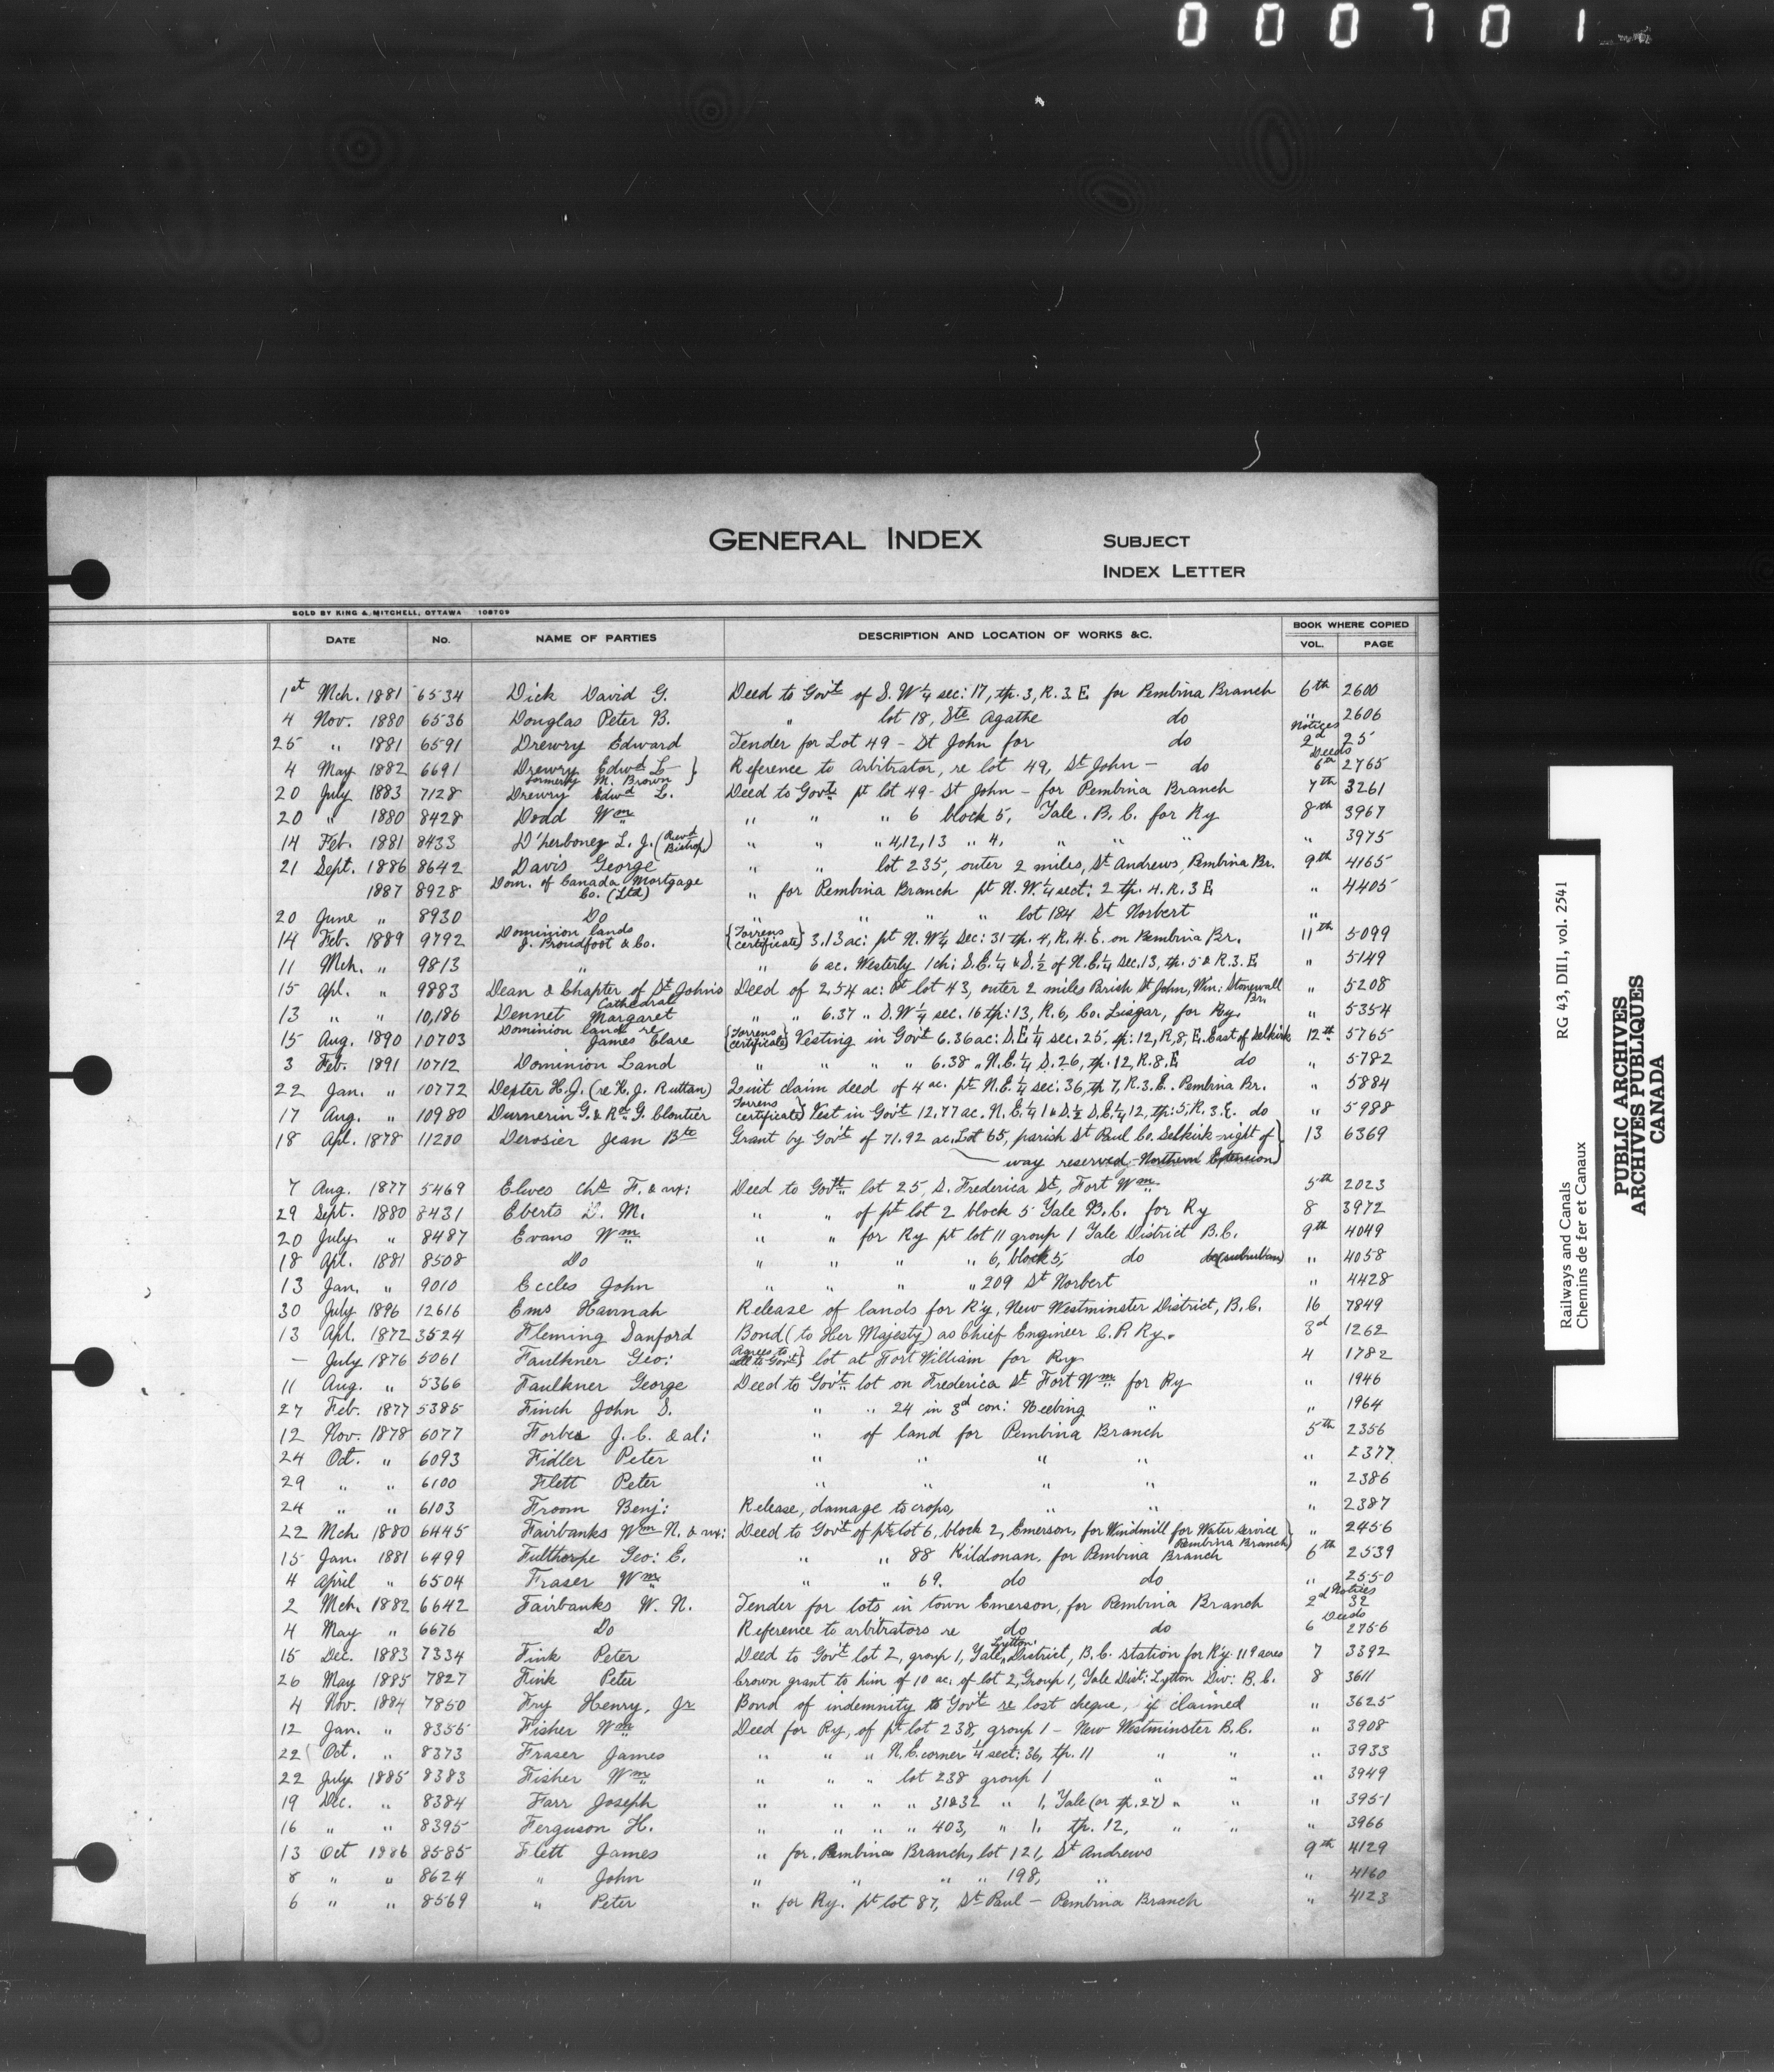 000701
GENERAL INDEX
SUBJECT
INDEX LETTER
SOLD BY KING & MITCHELL, OTTAWA 108709
DATE No. NAME OF PARTIES DESCRIPTION AND LOCATION OF WORKS &C. BOOK WHERE COPIED
VOL. PAGE
1st Mch. 1881 6534 Dick David G. Deed to Gov't of S.W¼ sec: 17, tp. 3, R. 3. E for Pembina Branch 6th 2600
4 Nov. 1880 6536 Douglas Peter B. " lot 18, Ste Agathe do " 2606
25 " 1881 6591 Drewry Edward Tender for Lot 49 - St John for do Notices 2d 25
4 May 1882 6691 Drewry Edwd L. formerly M. Brown } Reference to Arbitrator, re lot 49, St John - do Deeds 6th 2765
20 July 1883 7128 Drewry Edwd L. Deed to Govt pt lot 49 - St John - for Pembina Branch 7th 3261
20 " 1880 8428 Dodd Wm " " " 6 block 5, Yale. B.C. for Ry 8th 3967
14 Feb. 1881 8433 D'herbomez L. J. (Revd Bishop) " " " 4,12,13 " 4, " " " " 3975
21 Sept. 1886 8642 Davis George " " lot 235, outer 2 miles, St Andrews, Pembina Br. 9th 4165
1887 8928 Dom. of Canada Mortgage Co. (Ltd) " for Pembina Branch pt N.W.¼ sect: 2 tp. 4. R. 3 E " 4405
20 June " 8930 Do " " " " lot 184 St Norbert "
14 Feb. 1889 9792 Dominion lands J. Proudfoot & Co. {Torrens certificate} 3.13 ac: pt N.W¼ Sec: 31 tp. 4, R. 4. E. on Pembina Br. 11th 5099
11 Mch. " 9813 " " 6 ac. Westerly 1 ch: S.E.¼ & S.½ of N.E.¼ Sec. 13, tp. 5 & R. 3. E " 5149
15 Apl. " 9883 Dean & Chapter of St Johns Cathedral Deed of 2.54 ac: Pt lot 43, outer 2 miles Parish St John, Win: Stonewall Br. " 5208
13 " " 10,186 Dennet Margaret " " 6.37 " S.W¼ sec. 16 tp: 13, R. 6, Co. Lisgar, for Ry. " 5354
15 Aug. 1890 10703 Dominion lands re James Clare {Torrens certificate} Vesting in Gov't 6.36 ac: S.E¼ sec. 25, tp: 12, R, 8, E. East of Selkirk 12th 5765
3 Feb. 1891 10712 Dominion Land " " " " 6.38 " N.E.¼ S. 26, tp. 12, R. 8. E do " 5782
22 Jan. " 10772 Depter H.J. (re H. J. Ruttan) Quit claim deed of 4 ac. pt N.E.¼ sec: 36, tp 7, R. 3. E. Pembina Br. " 5884
17 Aug. " 10980 Dumerin G. & Rd. G. Cloutier Torrens certificate} Vest in Gov't 12.77 ac. N.E.¼ 1 & S.½ S.E.¼ 12, tp: 5, R. 3. E. do " 5988
18 Apl. 1878 11280 Derosier Jean Bte Grant by Gov't of 71.92 ac. Lot 65, parish St Paul Co. Selkirk - right of 13 6369
way reserved - Northern Extension}
7 Aug. 1877 5469 Elwes Chs F. & ux: Deed to Govt lot 25, S. Frederica St, Fort Wm 5th 2023
29 Sept. 1880 8431 Eberts D. M. " " of pt lot 2 block 5 Yale B.C. for Ry 8 3972
20 July " 8487 Evans Wm " " for Ry pt lot 11 group 1 Yale District B.C. 9th 4049
18 Apl. 1881 8508 Do " " " " 6, block 5, do do (suburban) " 4058
13 Jan. " 9010 Eccles John " " " " 209 St Norbert " 4428
30 July 1896 12616 Ems Hannah Release of lands for R'y, New Westminster District, B.C. 16 7849
13 Apl. 1872 3524 Fleming Sanford Bond (to Her Majesty) as Chief Engineer C.P. Ry. 3d 1262
- July 1876 5061 Faulkner Geo: Agrees to sell to Gov't} lot at Fort William for Ry 4 1782
11 Aug. " 5366 Faulkner George Deed to Gov't lot on Frederica St Fort Wm for Ry " 1946
27 Feb. 1877 5385 Finch John S. " " 24 in 3d con: Neebing " " 1964
12 Nov. 1878 6077 Forbes J. C. & al: " of land for Pembina Branch 5th 2356
24 Oct. " 6093 Fidler Peter " " " " " 2377
29 " " 6100 Flett Peter " " " " " 2386
24 " " 6103 Froom Benj: Release, damage to crops, " " " 2387
22 Mch. 1880 6445 Fairbanks Wm N. & ux: Deed to Gov't of pt lot 6, block 2, Emerson, for Windmill for Water service Pembina Branch} " 2456
15 Jan. 1881 6499 Fulthorpe Geo: E. " " 88 Kildonan, for Pembina Branch 6th 2539
4 April " 6504 Fraser Wm " " 69. do do " 2550
2 Mch. 1882 6642 Fairbanks W. N. Tender for lots in town Emerson, for Pembina Branch 2d Notices 32
4 May " 6676 Do Reference to arbitrators re do do 6 Deeds 2756
15 Dec. 1883 7334 Fink Peter Deed to Gov't lot 2, group 1, Yale, Lytton District, B.C. station for R'y. 119 acres 7 3392
26 May 1885 7827 Fink Peter Crown grant to him of 10 ac. of lot 2, Group 1, Yale Dist: Lytton Div: B.C. 8 3611
4 Nov. 1884 7850 Fry Henry, Jr Bond of indemnity to Gov't re lost cheque, if claimed " 3625
12 Jan. " 8355 Fisher Wm Deed for Ry, of pt lot 238, group 1 - New Westminster B.C. " 3908
22 Oct. " 8373 Fraser James " " " N.E. corner ¼ sect: 36, tp. 11 " " " 3933
22 July 1885 8383 Fisher Wm " " " lot 238 group 1 " " " 3949
19 Dec. " 8384 Farr Joseph " " " " 31&32 " 1, Yale (or tp. 27) " " " 3951
16 " " 8395 Ferguson H. " " " " 403, " 1, tp. 12, " " " 3966
13 Oct 1886 8585 Flett James " for Pembina Branch, lot 121, St Andrews 9th 4129
8 " " 8624 " John " " " " 198, " " 4160
6 " " 8569 " Peter " for Ry. pt lot 87, St Paul - Pembina Branch " 4123
Railways and Canals RG 43, DII1, vol. 2541
Chemins de fer et Canaux
PUBLIC ARCHIVES
ARCHIVES PUBLIQUES
CANADA